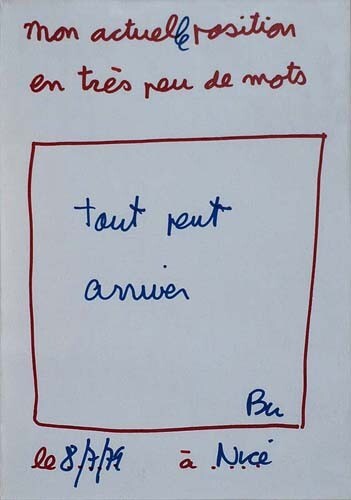 Mon actuelle position
en très peu de mots
tout peut
arriver
Bu
le 8/7/79 à Nice